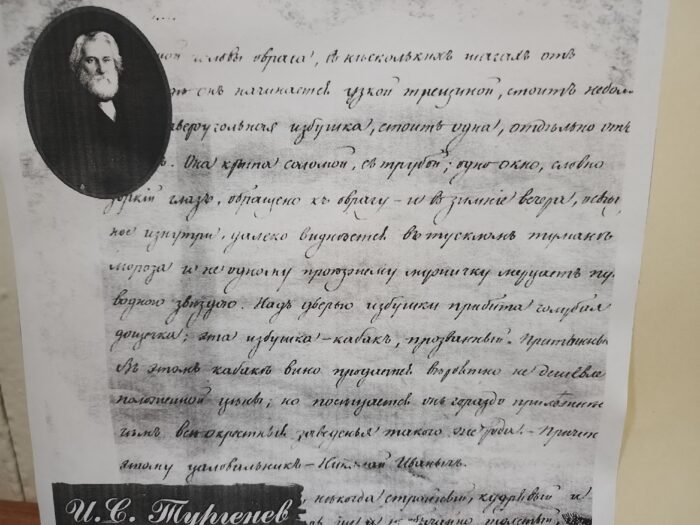 самой головы оврага, въ нѣсколькихъ шагахъ отъ
онъ начинается узкой трещиной, стоитъ неболь
четвероугольная избушка, стоитъ одна, отдѣльно отъ
Она крыта соломой, съ трубой; одно окно, словно
зоркій глазъ, обращено къ оврагу – и въ зимніе вечера, освѣщен
ное изнутри, далеко виднѣется въ тускломъ туманѣ
мороза и не одному проѣзжему мужичку мерцаетъ пу
водною звѣздою. Надъ дверью избушки прибита голубая
дощечка; эта избушка – кабакъ, прозванный Притынный
Въ этомъ кабакѣ вино продается вѣроятно не дешевле
положенной цѣны; но посѣщается онъ гораздо прилежнѣе
чѣмъ всѣ окрестныя заведенья такого же рода. – Причин
этому цаловальникъ – Николай Иванычъ.
нѣкогда стройный, кудрявый и
И.С. Тургенев
толстый